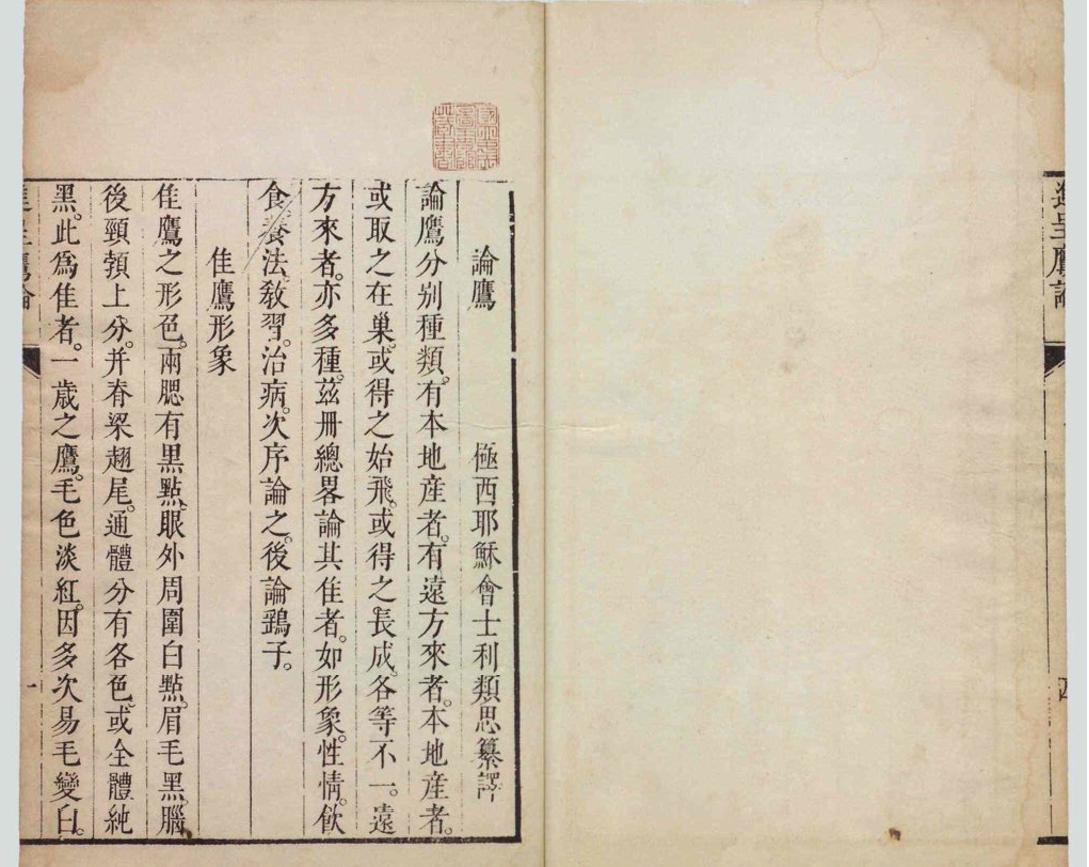 進呈鷹論
論鷹　極西耶穌會士利類思纂譯
論鷹分别種類。有本地産者。有遠方來者。本地産者。
或取之在巢。或得之始飛。或得之長成。各等不一。遠
方來者。亦多種。茲冊總畧論其佳者。如形象。性情。飲
食。養法。敎習。治病。次序論之。後論鷂子。
佳鷹形象
佳鷹之形色。兩腮有黒點。眼外周圍白點。眉毛黑。腦
後頸頷上分。并脊梁翅尾。通體分有各色。或全體純
黑。此爲佳者。一歲之鷹。毛色淡紅。因多次易毛變白。
進呈鷹論　一